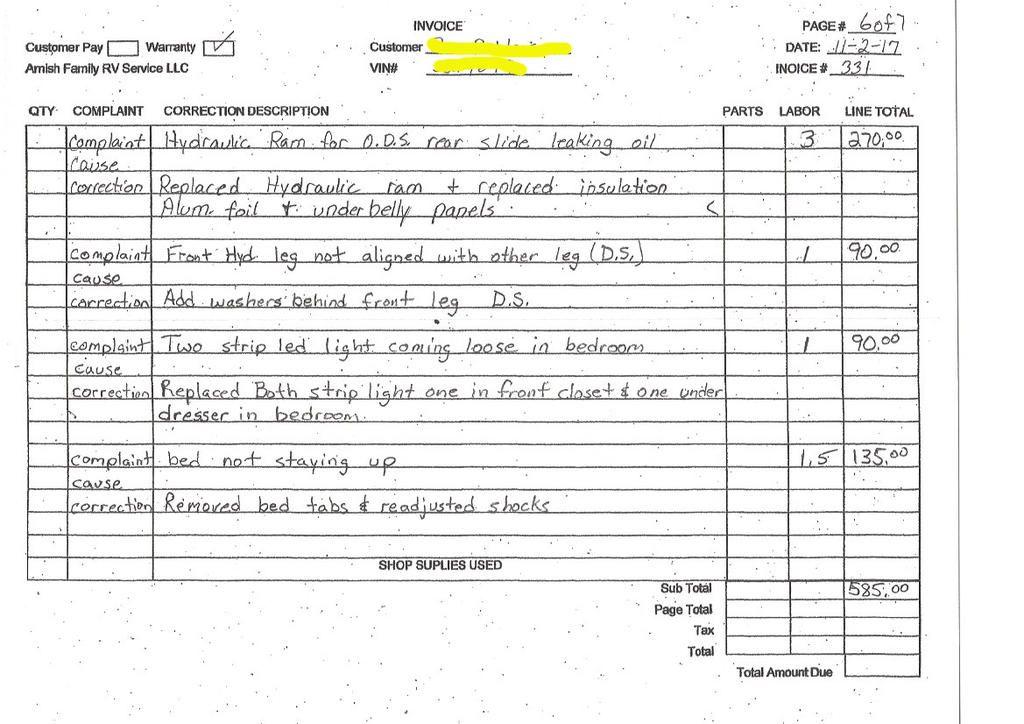 INVOICE
PAGE# 6of7
Customer Pay Warranty
Customer
DATE: 11-2-17
Amish Family RV Service LLC
VIN#
INOICE# 331
QTY COMPLAINT CORRECTION DESCRIPTION PARTS LABOR LINE TOTAL
Complaint Hydraulic Ram for O.D.S. rear slide leaking oil 3 270.00
Cause
Correction Replaced Hydraulic ram + replaced insulation
Alum foil + underbelly panels
complaint Front Hyd leg not aligned with other leg (D.S.) 1 90.00
cause
correction Add washers behind front leg D.S.
complaint Two strip led light coming loose in bedroom 1 90.00
cause
correction Replaced Both strip light one in front closet & one under
dresser in bedroom.
complaint bed not staying up 1.5 135.00
cause
correction Removed bed tabs & readjusted shocks
SHOP SUPLIES USED
Sub Total 585.00
Page Total
Tax
Total
Total Amount Due